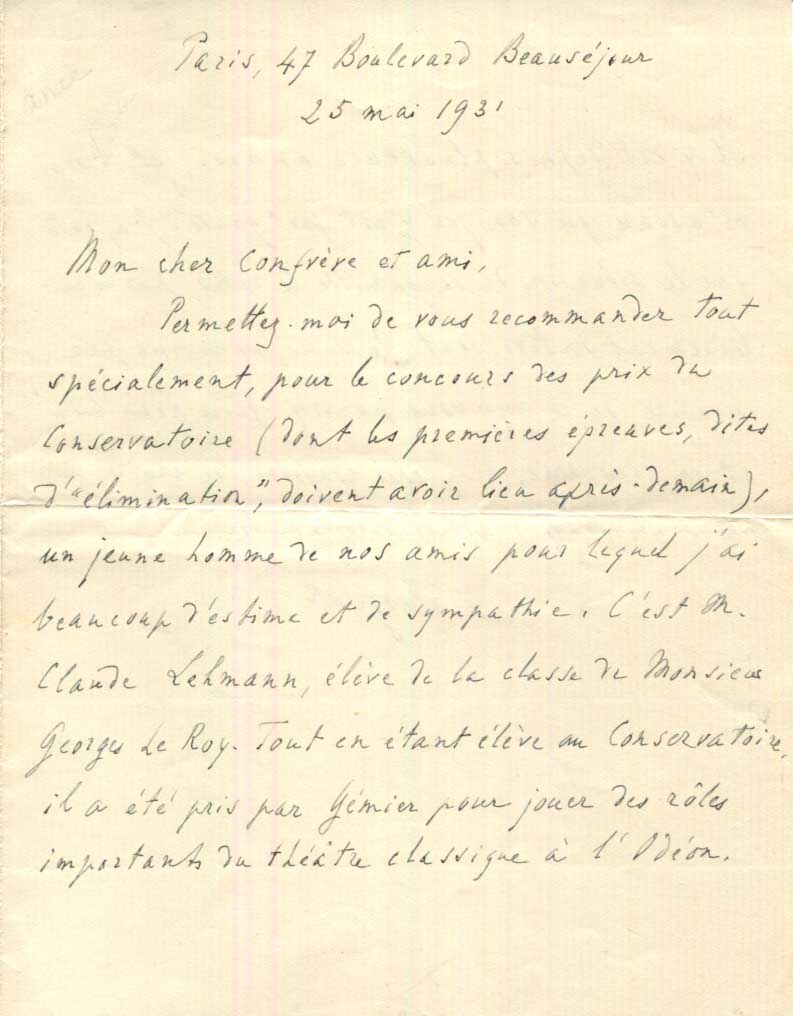 Paris, 47 Boulevard Beauséjour
25 mai 1931
Mon cher Confrère et ami,
Permettez-moi de vous recommander tout
spécialement, pour le concours des prix du
Conservatoire (dont les premières épreuves, dites
d'"élimination", doivent avoir lieu après-demain),
un jeune homme de nos amis pour lequel j'ai
beaucoup d'estime et de sympathie. C'est M.
Claude Lehmann, élève de la classe de Monsieur
Georges Le Roy. Tout en étant élève au Conservatoire,
il a été pris par Gémier pour jouer des rôles
importants du théâtre classique à l'Odéon.